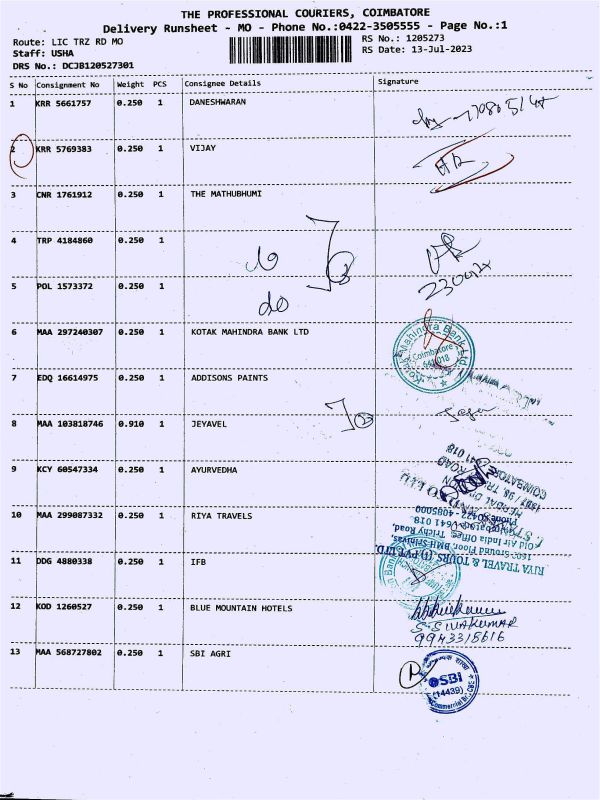 THE PROFESSIONAL COURIERS, COIMBATORE
Delivery Runsheet ~ MO - Phone No.:0422-3505555 - Page No.:1
Route: LIC TRZ RD MO
Staff: USHA
DRS No.: DCJB120527301
RS No.: 1205273
RS Date: 13-Jul-2023
S No Consignment No Weight PCS Consignee Details Signature
1 KRR 5661757 0.250 1 DANESHWARAN
2 KRR 5769383 0.250 1 VIJAY
3 CNR 1761912 0.250 1 THE MATHUBHUMI
4 TRP 4184860 0.250 1
do
23042
5 POL 1573372 0.250 1
do
6 MAA 297240307 0.250 1 KOTAK MAHINDRA BANK LTD
Kotak Mahindra Bank Ltd
Coimbatore
641 018
7 EDQ 16614975 0.250 1 ADDISONS PAINTS
8 MAA 103818746 0.910 1 JEYAVEL
9 KCY 60547334 0.250 1 AYURVEDHA
COIMBATORE
641 018
10 MAA 299087332 0.250 1 RIYA TRAVELS
RIYA TRAVEL & TOURS (I) PVT LTD
Old Air India Office, Trichy Road,
Coimbatore-641 018.
Phone: 0422 - 4085000
11 DDG 4880338 0.250 1 IFB
12 KOD 1260527 0.250 1 BLUE MOUNTAIN HOTELS
S. SIVAKUMAR
9943315616
13 MAA 568727802 0.250 1 SBI AGRI
SBI
(14439)